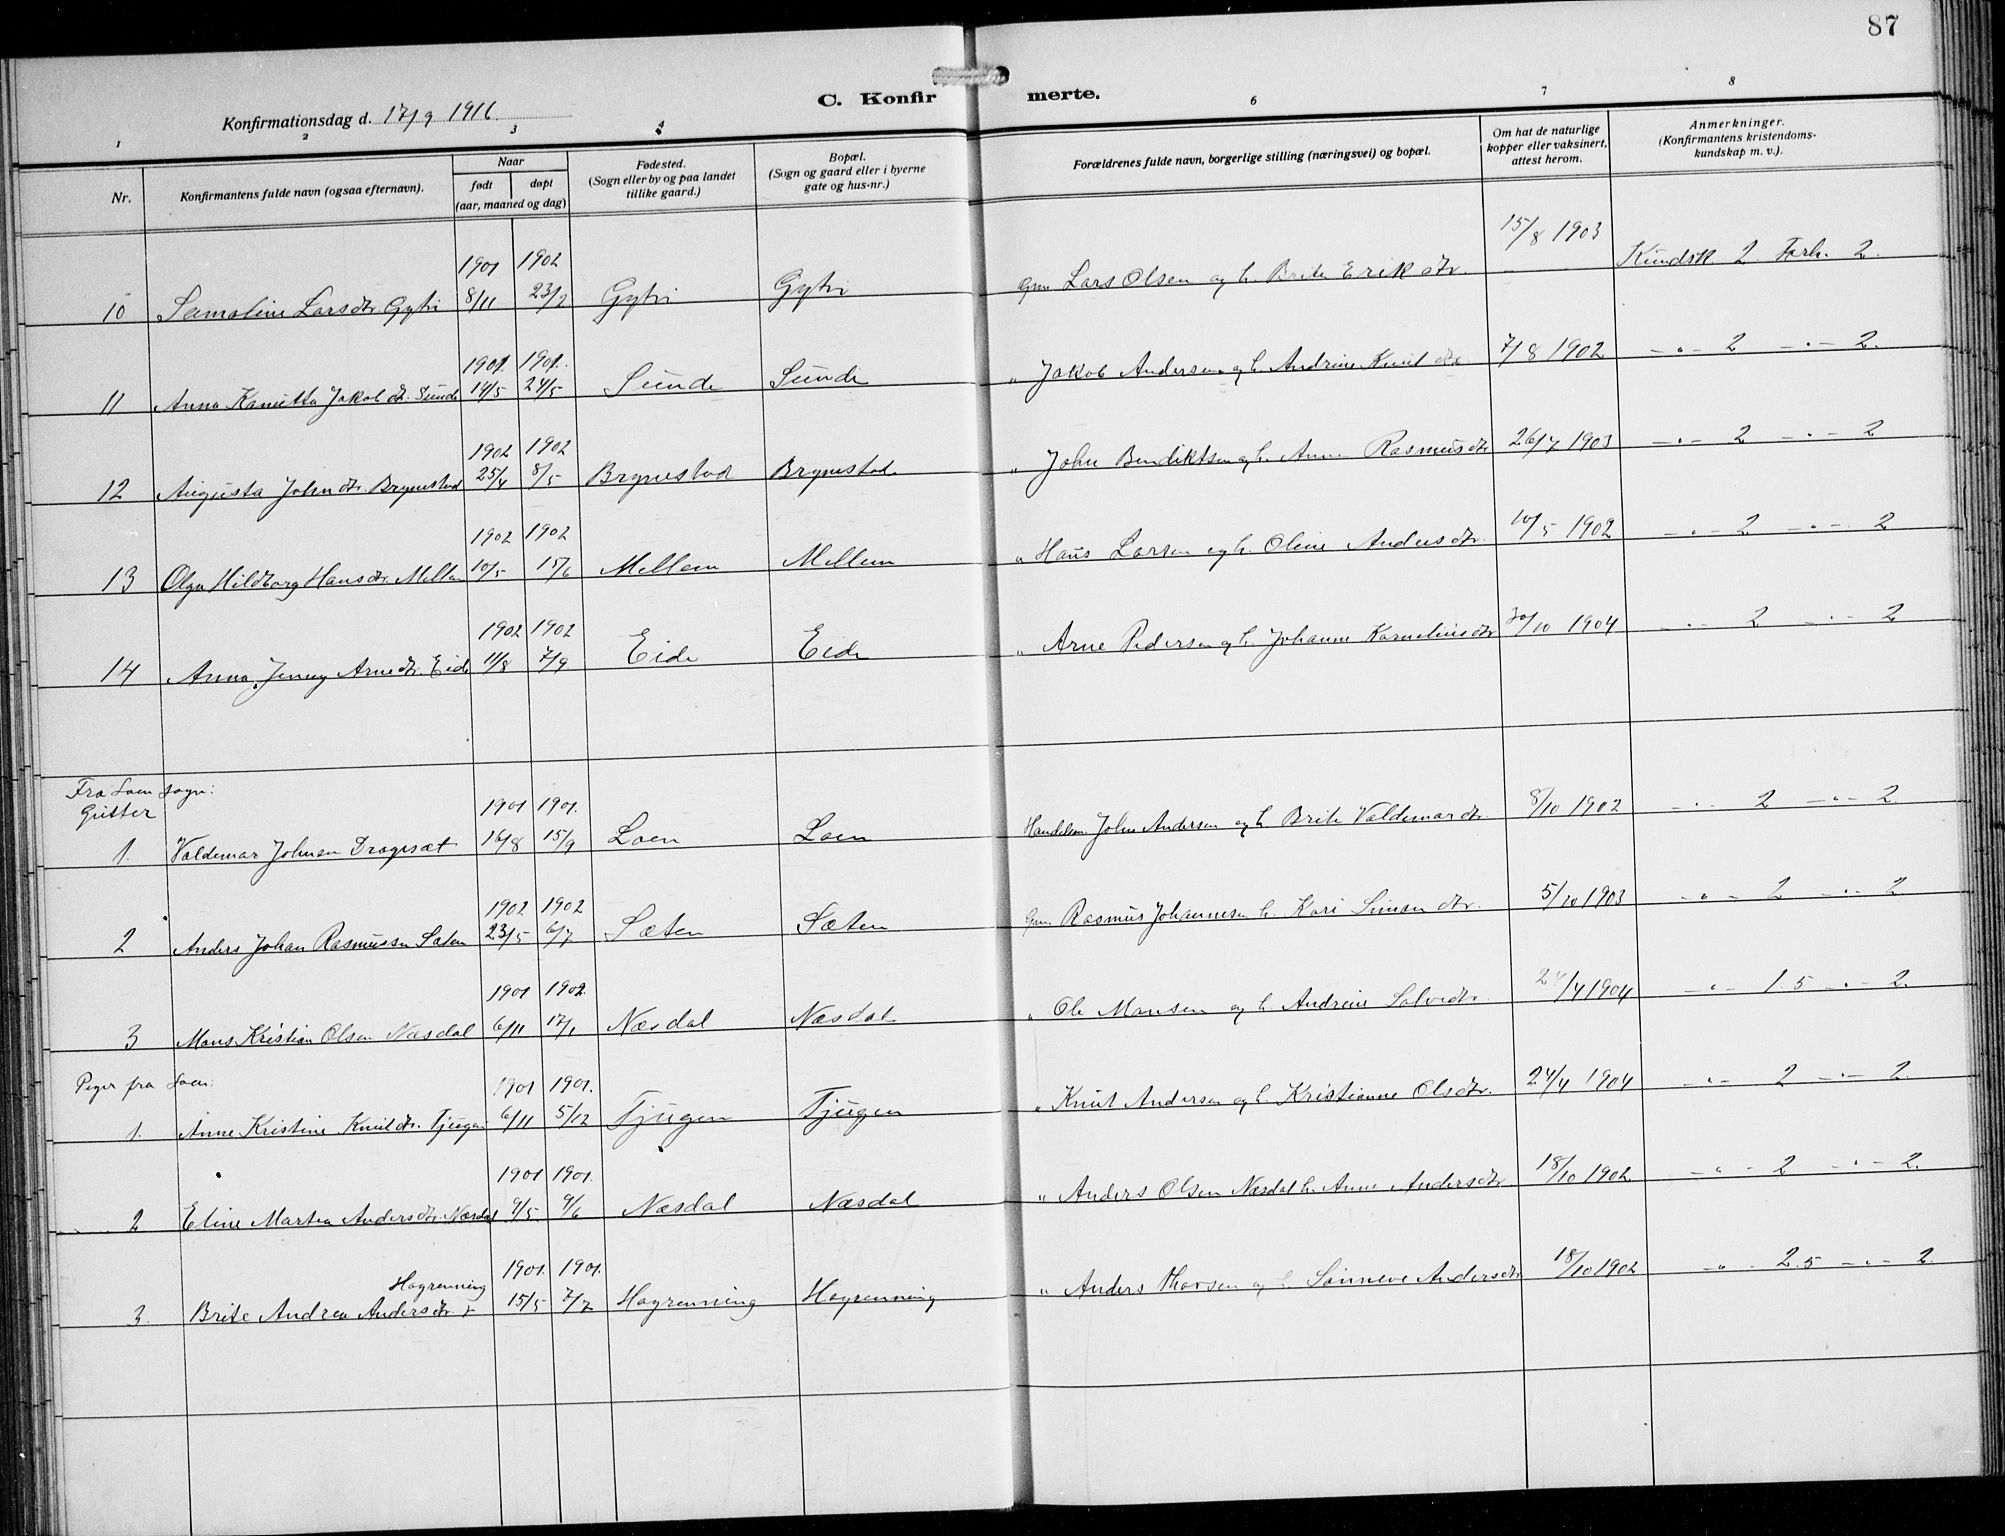 87
C. Konfirmerte.
Konfirmationsdag d. 17/9 1916
1 2 3 4 6 7 8
Nr. Konfirmantens fulde navn (ogsaa efternavn). Naar født døpt (aar, maaned og dag) Fødested. (Sogn eller by og paa landet tillike gaard.) Bopæl. (Sogn og gaard eller i byerne gate og hus-nr.) Forældrenes fulde navn, borgerlige stilling (næringsvei) og bopæl. Om hat de naturlige kopper eller vaksinert, attest herom. Anmerkninger. (Konfirmantens kristendomskundskap m. v.).
10 Samoline Larsdtr. Gytri 1901 8/11 1902 23/2 Gytri Gytri Gm. Lars Olsen og h. Brite Eriksdtr. 15/8 1903 Kundsk. 2 Forh. 2.
11 Anna Jakobdtr. Sunde 1901 14/5 1901. 24/5 Sunde Sunde " Jakob Andersen og h. Andrine Knutdtr. 7/8 1902 -"- 2 -"- 2.
12 Augusta Johndtr. Brynestad 1902 25/4 1902 8/5 Brynestad Brynestad " John Bendiktsen og h. Anne Rasmusdtr 26/7 1903 -"- 2 -"- 2
13 Olga Hildborg Hansdtr. Mellem 1902 10/5 1902 15/6 Mellem Mellem " Hans Larsen og h. Oline Andersdtr. 10/5 1902 -"- 2 -"- 2
14 Anna Jenny Arnedtr. Eide 1902 11/8 1902 7/9 Eide Eide " Arne Pedersen og h. Johanne Korneliusdtr 30/10 1904 -"- 2 -"- 2
Fra Loen sogn:
Gutter
1. Valdemar Johnsen Dragesæt 1901 16/8 1901. 15/9 Loen Loen Handelsm. John Andersen og h. Brite Valdemardtr. 8/10 1902 -"- 2 -"- 2
2 Anders Johan Rasmussen Sæten 1902 23/5 1902 6/7 Sæten Sæten Gm. Rasmus Johannesen h. Kari Simondtr. 5/10 1903 -"- 2 -"- 2
3 Mons Kristian Olsen Næsdal 1901 6/11 1902. 17/1 Næsdal Næsdal " Ole Monsen og h. Andrine Salvedtr. 24/4 1904 -"- 1.5 -"- 2.
Piger fra Loen:
1. Anne Kristine Knutdtr. Tjugen 1901 6/11 1901. 5/12 Tjugen Tjugen " Knut Andersen og h. Kristianne Olsdtr. 24/4 1904 -"- 2 -"- 2.
2 Eline Martea Andersdtr. Næsdal 1901 9/5 1901. 9/6 Næsdal Næsdal " Anders Olsen Næsdal h. Anne Andersdtr 18/10 1902. -"- 2 -"- 2.
3. Brite Andrea Andersdtr. Hogrenning 1901. 15/5 1901. 7/7 Hogrenning Hogrenning " Anders Thorsen og h. Sønneve Andersdtr 18/10 1902 -"- 2.5 -"- 2.